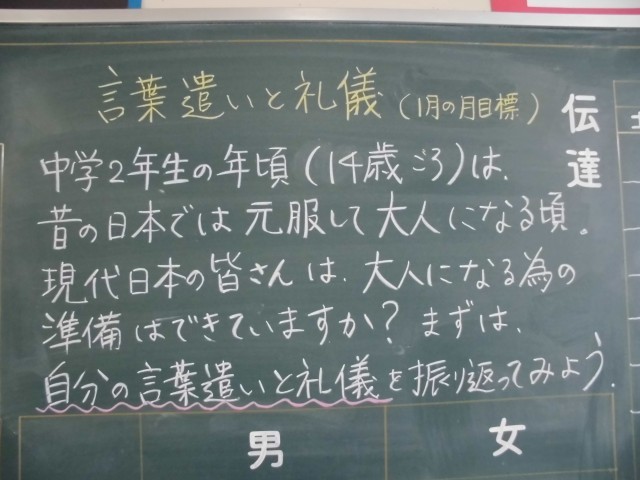 言葉遣いと礼儀(1月の月目標)
伝達
中学2年生の年頃(14歳ごろ)は、
昔の日本では元服して大人になる頃。
現代日本の皆さんは、大人になる為の
準備はできていますか?まずは、
自分の言葉遣いと礼儀を振り返ってみよう。
男
女